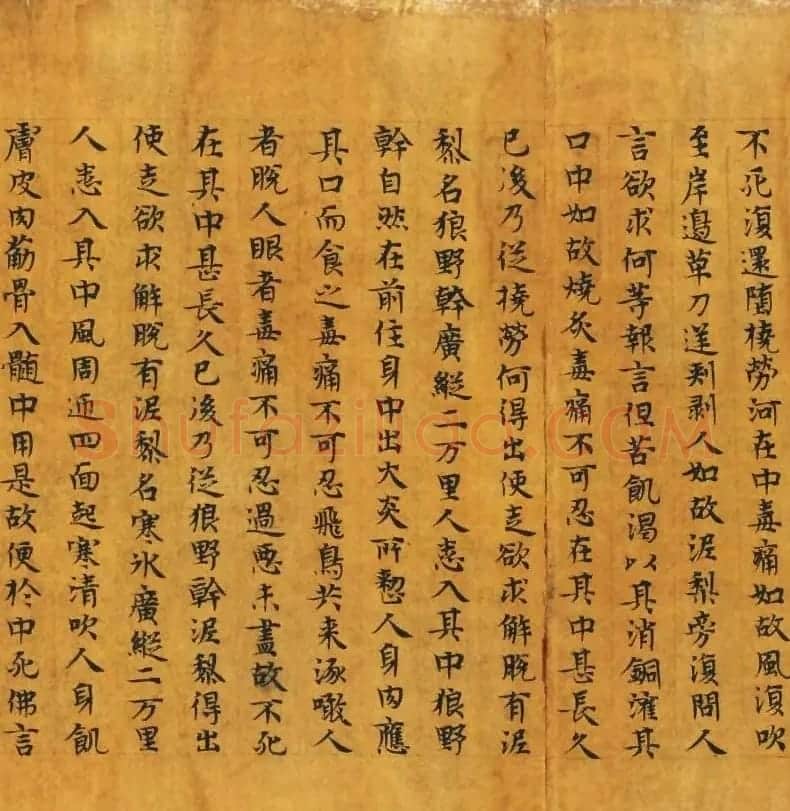 不死復還墮橈勞河在中毒痛如故風復吹
至岸邊草刀逆刺剥人如故泥犁旁復問人
言欲求何等報言但苦飢渴以其消銅灌其
口中如故燒炙毒痛不可忍在其中甚長久
已後乃從橈勞何得出便走欲求解脫有泥
黎名狼野幹廣縱二万里人悉入其中狼野
幹自然在前住身中出大炎所懃人身肉應
其口而食之毒痛不可忍飛鳥共來啄噉人
者脫人眼者毒痛不可忍過惡未盡故不死
在其中甚長久已後乃從狼野幹泥黎得出
使走欲求解脫有泥黎名寒氷廣縱二万里
人悉入其中風周迊四面起寒清吹人身飢
膚皮肉筋骨入髓中用是故便於中死佛言
Shufaziliao.COM